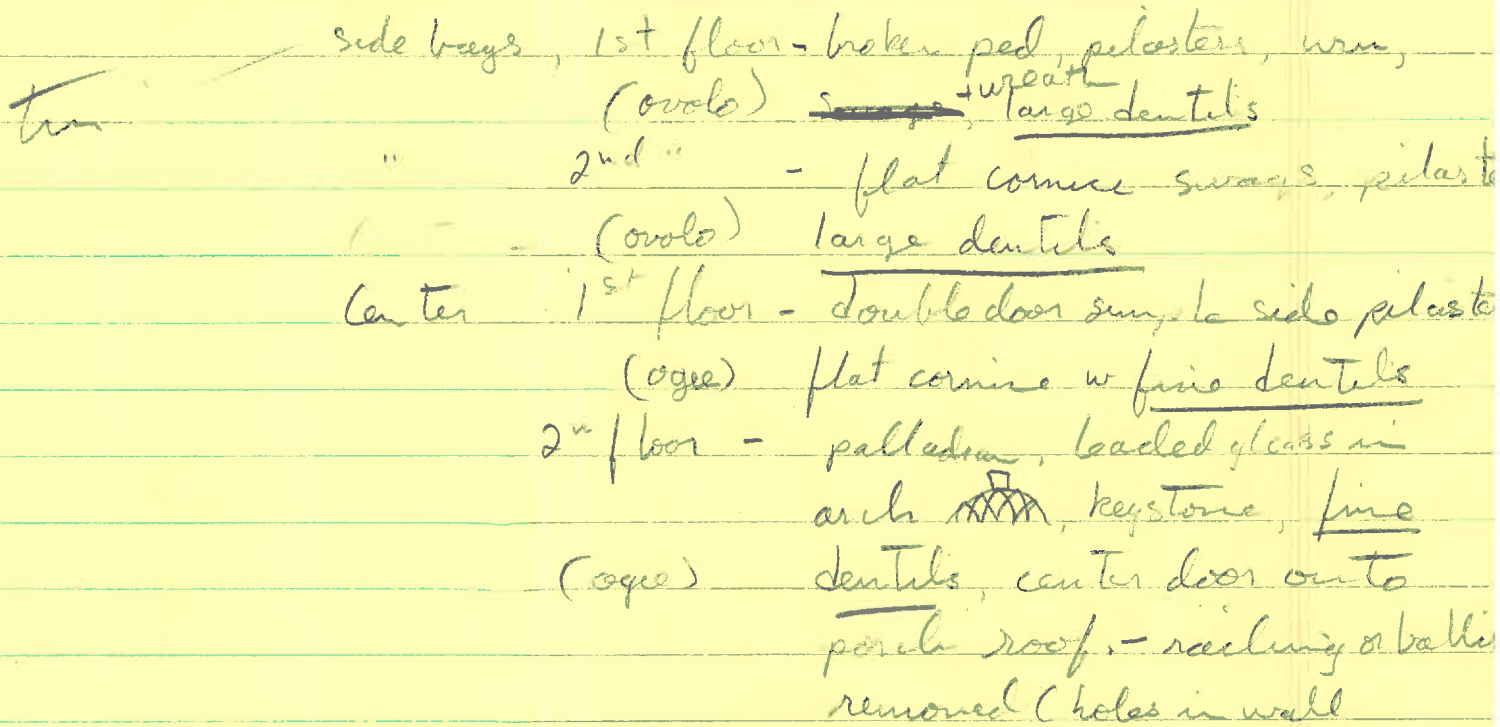 side bays, 1st floor - broken ped, pilasters, urn,
+ wreath
(ovolo) swags, large dentils
" 2nd " - flat cornice swags, pilaste
(ovolo) large dentils
Center 1st floor - double door side pilaste
(ogee) flat cornice w fine dentils
2n floor - palladian, leaded glass in
arch , keystone, fine
(ogee) dentils, center door onto
porch roof. - railing or
removed (holes in wall